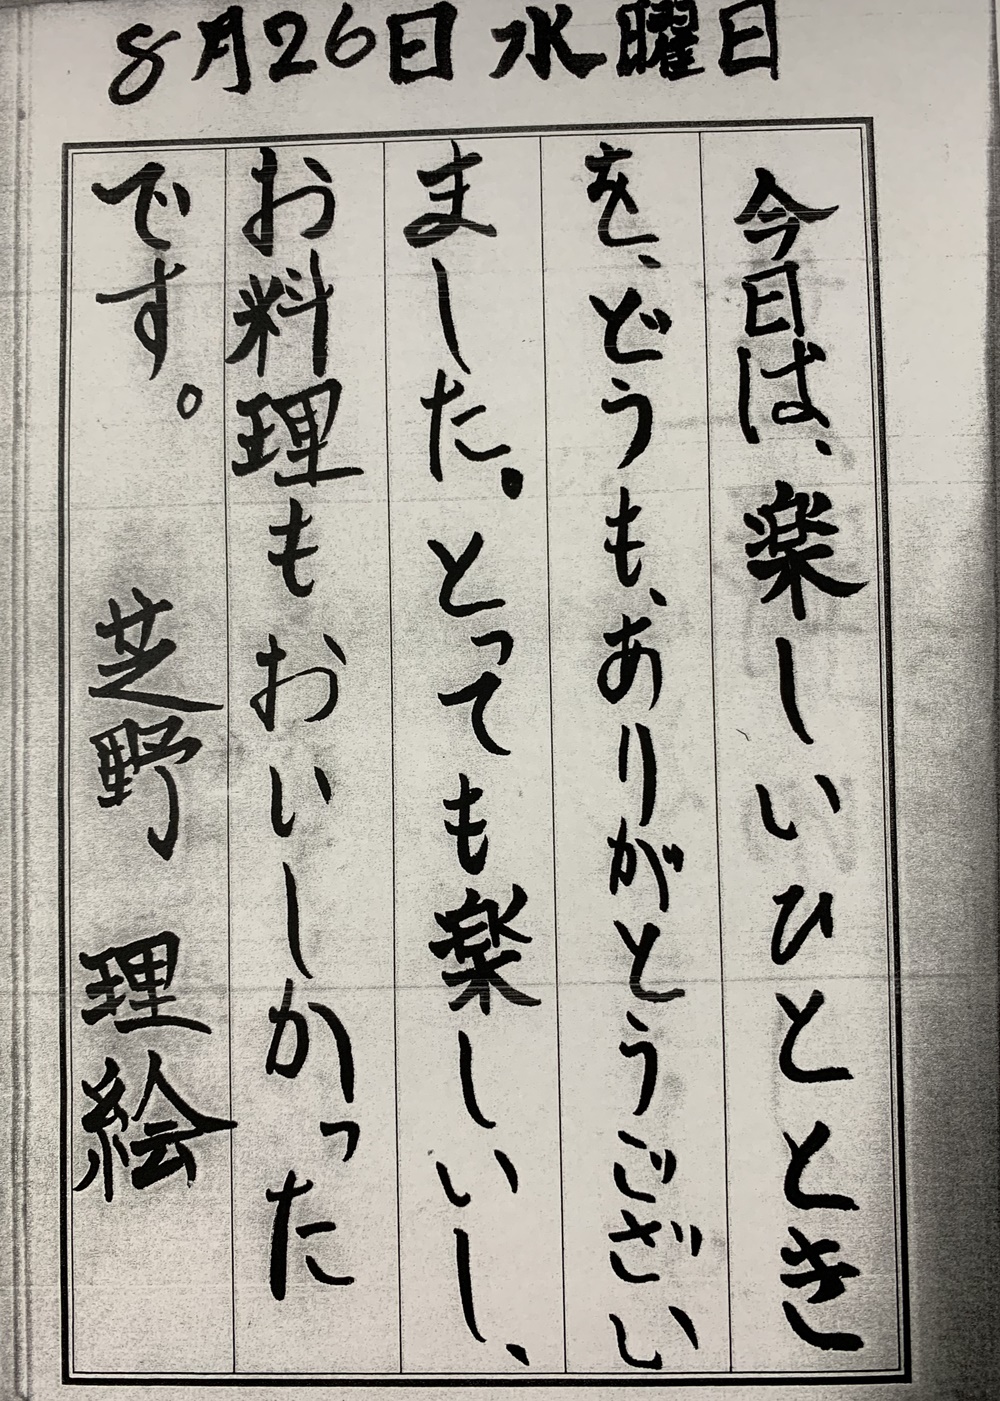 8月26日水曜日
今日は、楽しいひととき
を、どうも、ありがとうござい
ました。とっても楽しいし、
お料理もおいしかった
です。 芝野 理絵